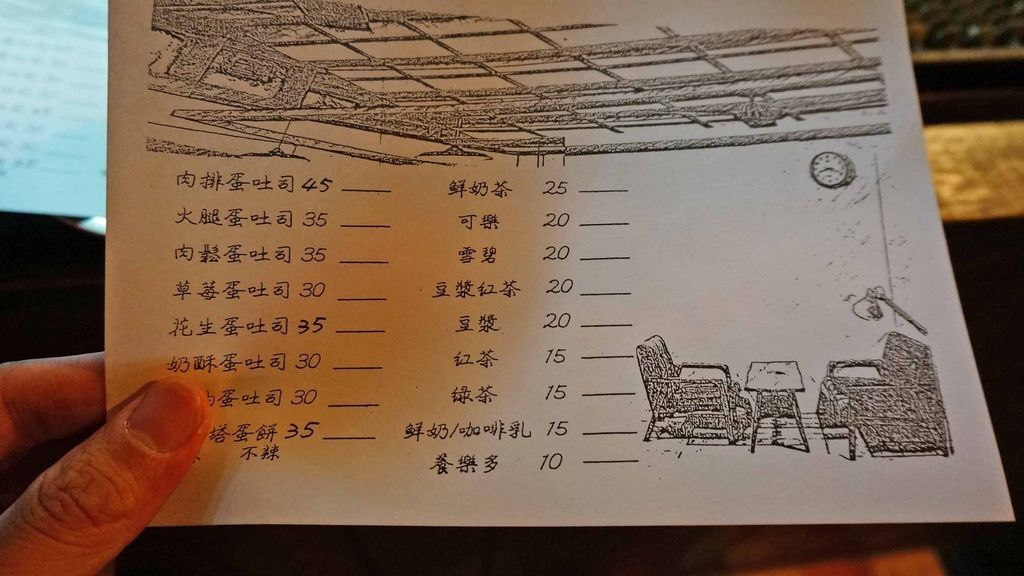 肉排蛋吐司 45
火腿蛋吐司 35
肉鬆蛋吐司 35
草莓蛋吐司 30
花生蛋吐司 35
奶酥蛋吐司 30
蛋吐司 30
塔蛋餅 35
不辣
鮮奶茶 25
可樂 20
雪碧 20
豆漿紅茶 20
豆漿 20
紅茶 15
綠茶 15
鮮奶/咖啡乳 15
養樂多 10